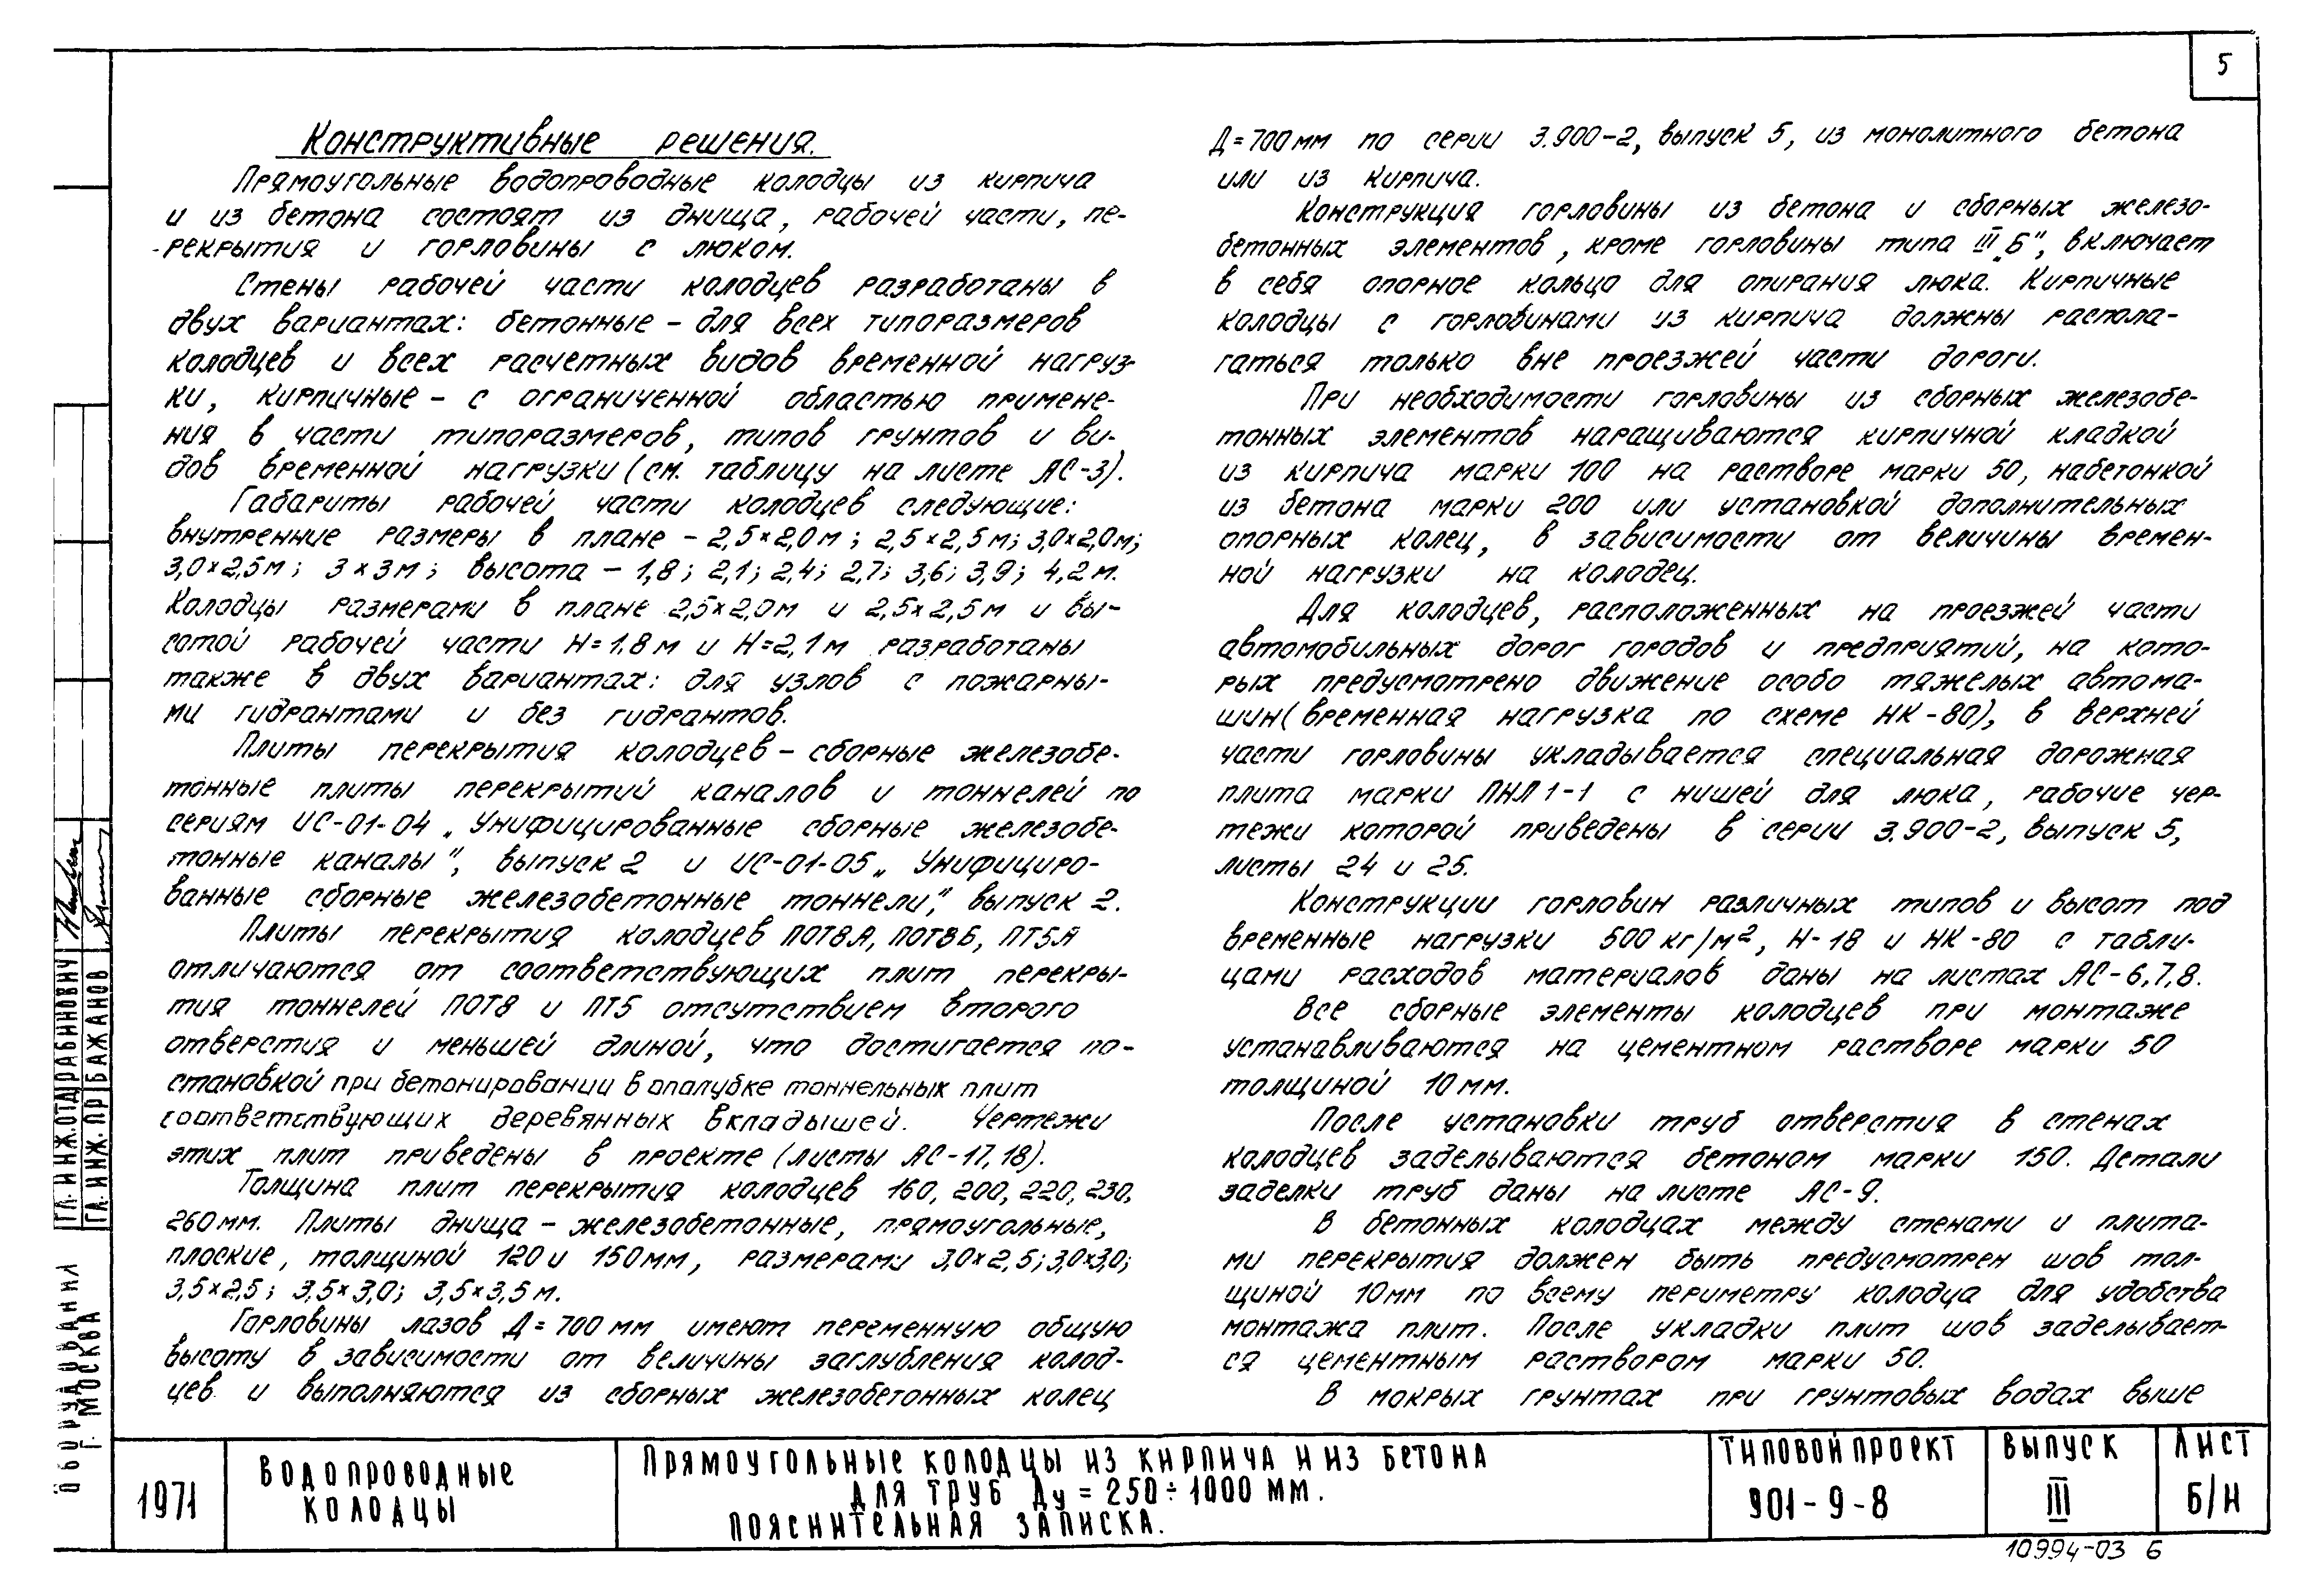 5
Конструктивные решения.
Прямоугольные водопроводные колодцы из кирпича
и из бетона состоят из днища, рабочей части, пе-
рекрытия и горловины с люком.
Стены рабочей части колодцев разработаны в
двух вариантах: бетонные – для всех типоразмеров
колодцев и всех расчетных видов временной нагруз-
ки, кирпичные – с ограниченной областью примене-
ния в части типоразмеров, типов грунтов и ви-
дов временной нагрузки (см. таблицу на листе АС-3).
Габариты рабочей части колодцев следующие:
внутренние размеры в плане – 2,5×2,0м; 2,5×2,5м; 3,0×2,0м;
3,0×2,5м; 3×3м; высота – 1,8; 2,1; 2,4; 2,7; 3,6; 3,9; 4,2м.
Колодцы размерами в плане 2,5×2,0м и 2,5×2,5м и вы-
сотой рабочей части Н=1.8м и Н=2,1м разработаны
также в двух вариантах: для узлов с пожарны-
ми гидрантами и без гидрантов.
Плиты перекрытия колодцев – сборные железобе-
тонные плиты перекрытий каналов и тоннелей по
сериям ИС-01-04 „Унифицированные сборные железобе-
тонные каналы", выпуск 2 и ИС-01-05 „Унифициро-
ванные сборные железобетонные тоннели", выпуск 2.
Плиты перекрытия колодцев ПОТ8А, ПОТ8Б, ПТ5А
отличаются от соответствующих плит перекры-
тия тоннелей ПОТ8 и ПТ5 отсутствием второго
отверстия и меньшей длиной, что достигается по-
становкой при бетонировании в опалубке тоннельных плит
соответствующих деревянных вкладышей. Чертежи
этих плит приведены в проекте (листы АС-17, 18).
Толщина плит перекрытия колодцев 160, 200, 220, 230,
260мм. Плиты днища – железобетонные, прямоугольные,
плоские, толщиной 120 и 150мм, размерами 3,0×2,5; 3,0×3,0;
3,5×2,5; 3,5×3,0; 3,5×3,5м.
Горловины лазов Д=700мм имеют переменную общую
высоту в зависимости от величины заглубления колод-
цев и выполняются из сборных железобетонных колец
Д=700мм по серии 3.900-2, выпуск 5, из монолитного бетона
или из кирпича.
Конструкция горловины из бетона и сборных железо-
бетонных элементов, кроме горловины типа III „Б", включает
в себя опорное кольцо для опирания люка. Кирпичные
колодцы с горловинами из кирпича должны распола-
гаться только вне проезжей части дороги.
При необходимости горловины из сборных железобе-
тонных элементов наращиваются кирпичной кладкой
из кирпича марки 100 на растворе марки 50, набетонкой
из бетона марки 200 или установкой дополнительных
опорных колец, в зависимости от величины времен-
ной нагрузки на колодец.
Для колодцев, расположенных на проезжей части
автомобильных дорог городов и предприятий, на кото-
рых предусмотрено движение особо тяжелых автома-
шин (временная нагрузка по схеме НК-80), в верхней
части горловины укладывается специальная дорожная
плита марки ПНЛ1-1 с нишей для люка, рабочие чер-
тежи которой приведены в серии 3.900-2, выпуск 5,
листы 24 и 25.
Конструкции горловин различных типов и высот под
временные нагрузки 500 кг/м², Н-18 и НК-80 с табли-
цами расходов материалов даны на листах АС-6,7,8.
Все сборные элементы колодцев при монтаже
устанавливаются на цементном растворе марки 50
толщиной 10мм.
После установки труб отверстия в стенах
колодцев заделываются бетоном марки 150. Детали
заделки труб даны на листе АС-9.
В бетонных колодцах между стенами и плита-
ми перекрытия должен быть предусмотрен шов тол-
щиной 10мм по всему периметру колодца для удобства
монтажа плит. После укладки плит шов заделывает-
ся цементным раствором марки 50.
В мокрых грунтах при грунтовых водах выше
ГЛ. ИНЖ.ОТД РАБИНОВИЧ
ГЛ. ИНЖ. ПР БАЖАНОВ
ОБОРУДОВАНИЯ
Г. МОСКВА
1971
ВОДОПРОВОДНЫЕ
КОЛОДЦЫ
ПРЯМОУГОЛЬНЫЕ КОЛОДЦЫ ИЗ КИРПИЧА И ИЗ БЕТОНА
ДЛЯ ТРУБ Ду = 250÷1000 ММ.
ПОЯСНИТЕЛЬНАЯ ЗАПИСКА.
ТИПОВОЙ ПРОЕКТ
901-9-8
ВЫПУСК
III
ЛИСТ
Б/Н
10994-03 6